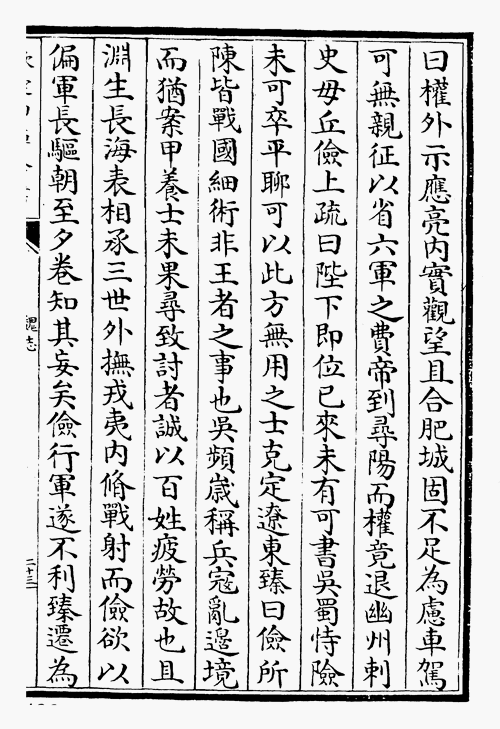 曰權外示應亮内實觀望且合肥城固不足為慮車駕
可無親征以省六軍之費帝到尋陽而權竟退幽州刺
史毋丘儉上疏曰陛下即位已來未有可書吳蜀恃險
未可卒平聊可以此方無用之士克定遼東臻曰儉所
陳皆戰國細術非王者之事也吳頻歳稱兵寇亂邉境
而猶案甲養士未果尋致討者誠以百姓疲勞故也且
淵生長海表相承三世外撫戎夷内脩戰射而儉欲以
偏軍長驅朝至夕卷知其妄矣儉行軍遂不利臻遷為
魏志
二十三